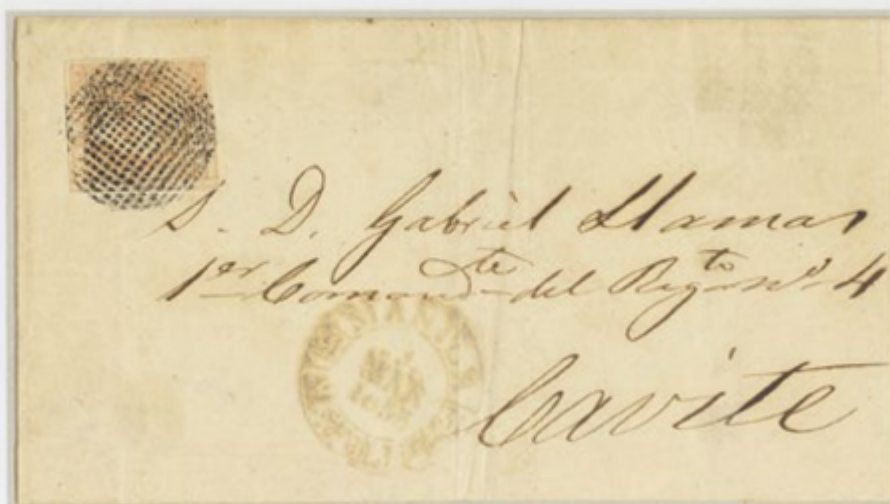 S. D. Gabriel Llamas
1er Comandte del Regto No 4
MANILA
Cavite